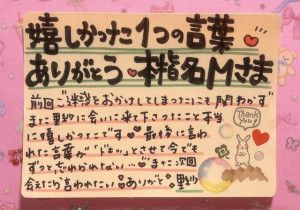 嬉しかった1つの言葉
ありがとう 本指名Mさま
前回ご迷惑をおかけしてしまったにも関わらず
また里紗に会いに来て下さったこと本当
に嬉しかったです 最後に言わ
れた言葉が「ドキッ」とさせて今でも
ずっと忘れられない… また次回
会えたら言われたい ありがとう 里紗
Thank you!